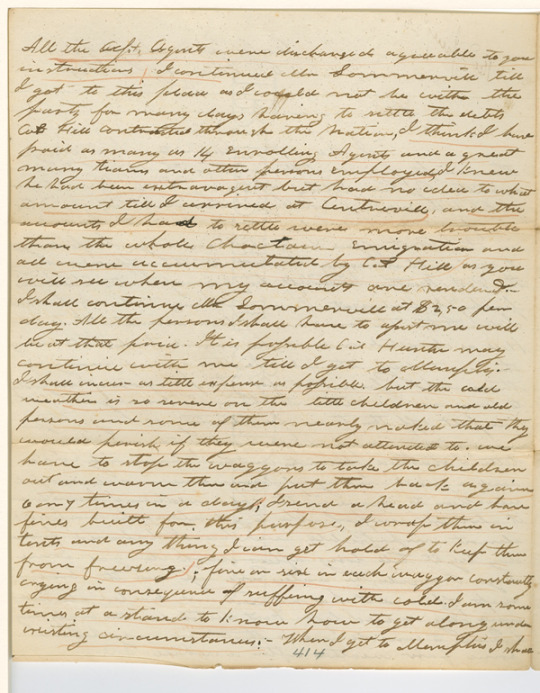 All the Asst. Agents were discharged agreeable to your
instructions, I continued Mr Sommerville till
I got to this place as I could not be with the
party for many days having to settle the debts
Cot Hill contracted through the Nation, I think I have
paid as many as 14 Enrolling Agents and a great
many teams and other persons employed, I knew
he had been extravagant but had no idea to what
amount till I arrived at Centreville, and the
accounts I had to settle were more trouble
than the whole Choctaw Emigration and
all were accumulated by Cot Hill as you
will see when my accounts are rendered.-
I shall continue Mr Sommerville at $2,50 per
day. All the persons I shall have to assist me will
be at that price. It is possible Cot Hunter may
continue with me till I get to Memphis.-
I shall incur as little expense as possible but the cold
weather is so severe on the little children and old
persons and some of them nearly naked that they
would perish if they were not attended to. we
have to stop the waggons to take the children
out and warm them and put them back again
6 or 7 times in a day, I send a head and have
fires built for this purpose, I wrap them in
tents and any thing I can get hold of to keep them
from freesing; five or six in each waggon constantly
crying in consequence of suffering with cold. I am some
times at a stand to know how to get along under
existing circumstances.- When I get to Memphis I shall
414